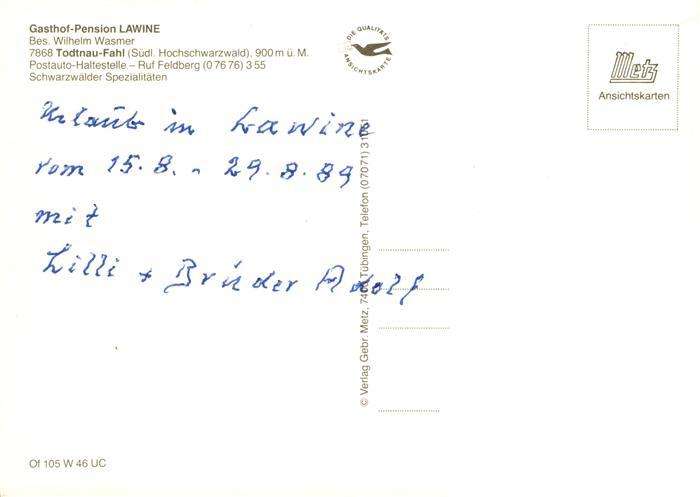 Gasthof-Pension LAWINE
Bes. Wilhelm Wasmer
7868 Todtnau-Fahl (Südl. Hochschwarzwald), 900 m ü. M.
Postauto-Haltestelle – Ruf Feldberg (0 76 76) 3 55
Schwarzwälder Spezialitäten
DIE QUALITÄTS
ANSICHTSKARTE
Metz
Ansichtskarten
Urlaub in Lawine
vom 15.8. - 29.8.89
mit
Lilli + Brüder Adolf
© Verlag Gebr. Metz, Tübingen, Telefon (0 70 71)
Of 105 W 46 UC